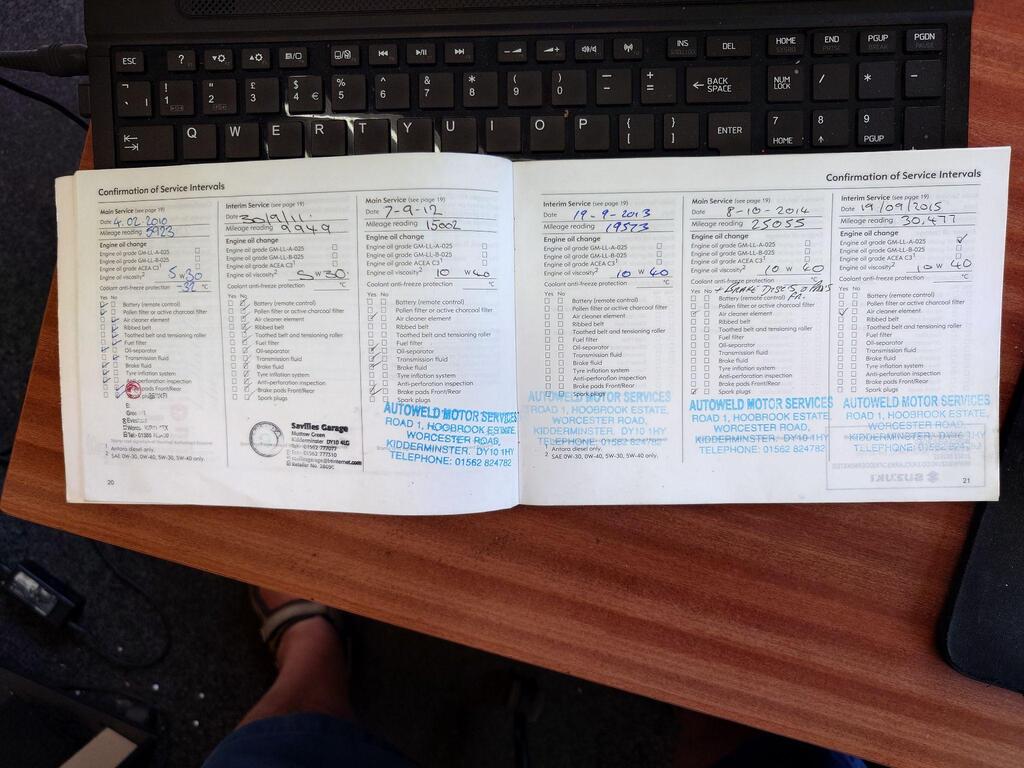 ESC ? INS DEL HOME END PGUP PGDN
! 1 " 2 £ 3 $ 4 € % 5 ^ 6 & 7 * 8 ( 9 ) 0 _ - + = BACK SPACE NUM LOCK / * -
Q W E R T Y U I O P { [ } ] ENTER 7 HOME 8 9 PGUP
Confirmation of Service Intervals
Main Service (see page 19)
Date 4.02.2010
Mileage reading 5923
Engine oil change
Engine oil grade GM-LL-A-025
Engine oil grade GM-LL-B-025
Engine oil grade ACEA C3¹
Engine oil viscosity² 5 W 30
Coolant anti-freeze protection -32 °C
Yes No
Battery (remote control)
Pollen filter or active charcoal filter
Air cleaner element
Ribbed belt
Toothed belt and tensioning roller
Fuel filter
Oil-separator
Transmission fluid
Brake fluid
Tyre inflation system
Anti-perforation inspection
Brake pads Front/Rear
¹ Antara diesel only.
² SAE 0W-30, 0W-40, 5W-30, 5W-40 only.
20
Interim Service (see page 19)
Date 30/9/11
Mileage reading 9949
Engine oil change
Engine oil grade GM-LL-A-025
Engine oil grade GM-LL-B-025
Engine oil grade ACEA C3¹
Engine oil viscosity² 5 W 30
Coolant anti-freeze protection °C
Yes No
Battery (remote control)
Pollen filter or active charcoal filter
Air cleaner element
Ribbed belt
Toothed belt and tensioning roller
Fuel filter
Oil-separator
Transmission fluid
Brake fluid
Tyre inflation system
Anti-perforation inspection
Brake pads Front/Rear
Spark plugs
Savilles Garage
Mustow Green
Kidderminster DY10 4LG
Main Service (see page 19)
Date 7-9-12
Mileage reading 15002
Engine oil change
Engine oil grade GM-LL-A-025
Engine oil grade GM-LL-B-025
Engine oil grade ACEA C3¹
Engine oil viscosity² 10 W 40
Coolant anti-freeze protection °C
Yes No
Battery (remote control)
Pollen filter or active charcoal filter
Air cleaner element
Ribbed belt
Toothed belt and tensioning roller
Fuel filter
Oil-separator
Transmission fluid
Brake fluid
Tyre inflation system
Anti-perforation inspection
Brake pads Front/Rear
Spark plugs
AUTOWELD MOTOR SERVICES
ROAD 1, HOOBROOK ESTATE,
WORCESTER ROAD,
KIDDERMINSTER. DY10 1HY
TELEPHONE: 01562 824782
Confirmation of Service Intervals
Interim Service (see page 19)
Date 19-9-2013
Mileage reading 19573
Engine oil change
Engine oil grade GM-LL-A-025
Engine oil grade GM-LL-B-025
Engine oil grade ACEA C3¹
Engine oil viscosity² 10 W 40
Coolant anti-freeze protection °C
Yes No
Battery (remote control)
Pollen filter or active charcoal filter
Air cleaner element
Ribbed belt
Toothed belt and tensioning roller
Fuel filter
Oil-separator
Transmission fluid
Brake fluid
Tyre inflation system
Anti-perforation inspection
Brake pads Front/Rear
Spark plugs
AUTOWELD MOTOR SERVICES
ROAD 1, HOOBROOK ESTATE,
WORCESTER ROAD,
KIDDERMINSTER. DY10 1HY
TELEPHONE: 01562 824782
¹ Antara diesel only.
² SAE 0W-30, 0W-40, 5W-30, 5W-40 only.
Main Service (see page 19)
Date 8-10-2014
Mileage reading 25055
Engine oil change
Engine oil grade GM-LL-A-025
Engine oil grade GM-LL-B-025
Engine oil grade ACEA C3¹
Engine oil viscosity² 10 W 40
Coolant anti-freeze protection °C
+ BRAKE DISCS
Yes No
Battery (remote control)
Pollen filter or active charcoal filter
Air cleaner element
Ribbed belt
Toothed belt and tensioning roller
Fuel filter
Oil-separator
Transmission fluid
Brake fluid
Tyre inflation system
Anti-perforation inspection
Brake pads Front/Rear
Spark plugs
AUTOWELD MOTOR SERVICES
ROAD 1, HOOBROOK ESTATE,
WORCESTER ROAD,
KIDDERMINSTER. DY10 1HY
TELEPHONE: 01562 824782
Interim Service (see page 19)
Date 19/09/2015
Mileage reading 30,477
Engine oil change
Engine oil grade GM-LL-A-025
Engine oil grade GM-LL-B-025
Engine oil grade ACEA C3¹
Engine oil viscosity² 10 W 40
Coolant anti-freeze protection °C
Yes No
Battery (remote control)
Pollen filter or active charcoal filter
Air cleaner element
Ribbed belt
Toothed belt and tensioning roller
Fuel filter
Oil-separator
Transmission fluid
Brake fluid
Tyre inflation system
Anti-perforation inspection
Brake pads Front/Rear
Spark plugs
AUTOWELD MOTOR SERVICES
ROAD 1, HOOBROOK ESTATE,
WORCESTER ROAD,
KIDDERMINSTER. DY10 1HY
TELEPHONE: 01562 824782
SUZUKI
21